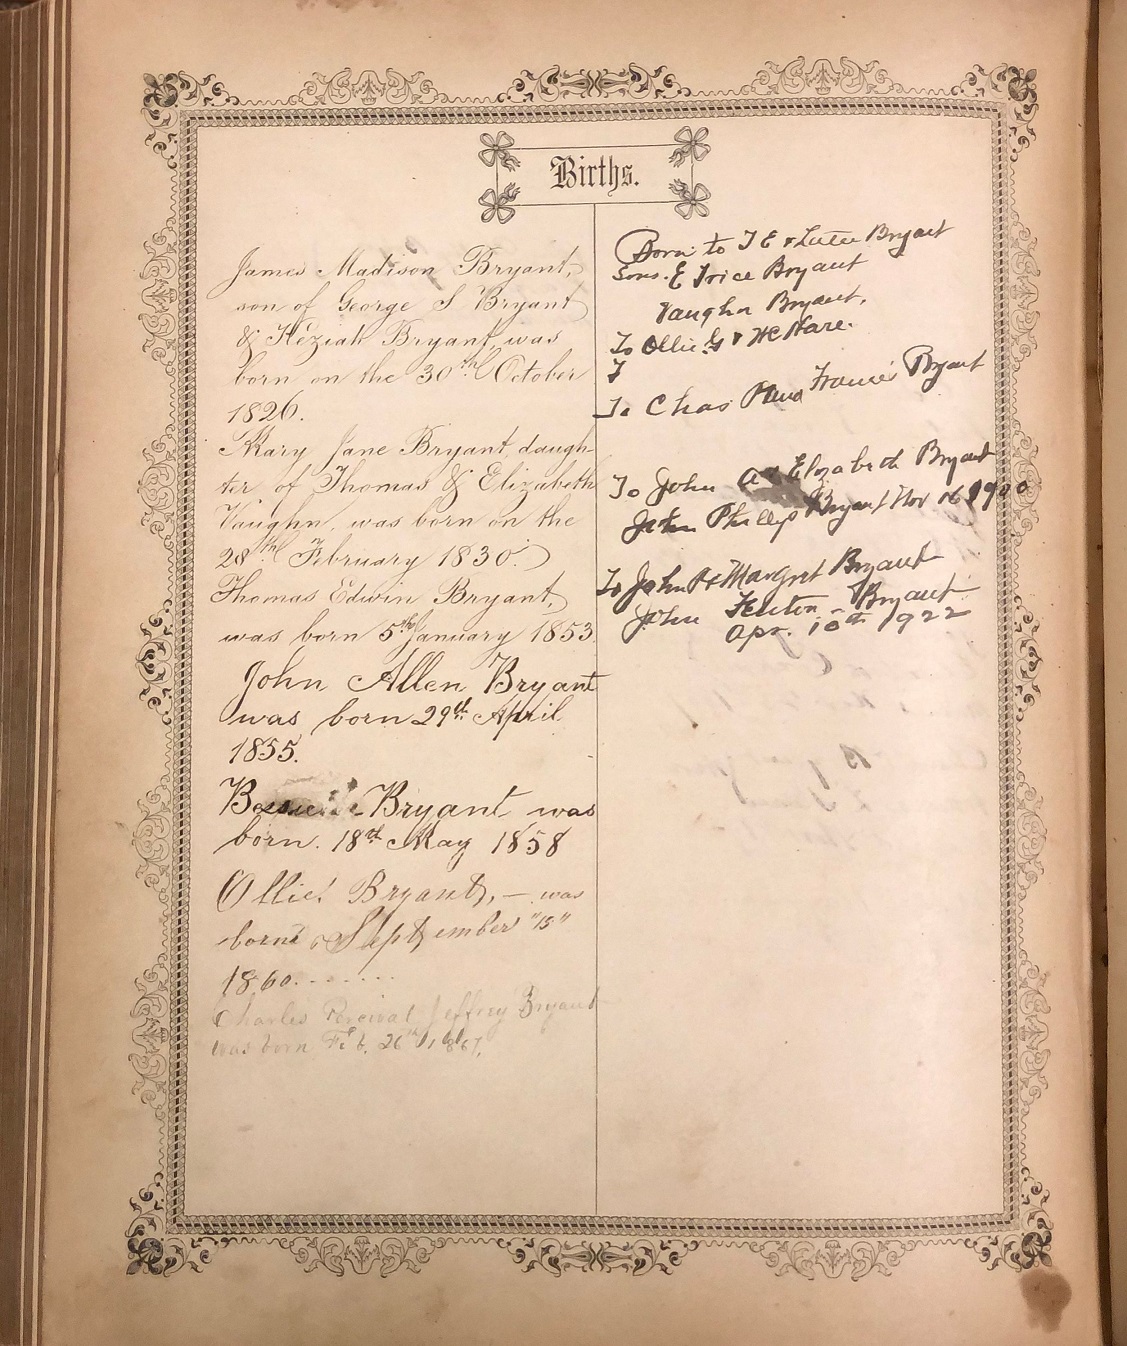 Births.
James Madison Bryant,
son of George S Bryant
& Keziah Bryant, was
born on the 30th October
1826.
Mary Jane Bryant, daugh-
ter of Thomas & Elizabeth
Vaughn, was born on the
28th February 1830.
Thomas Edwin Bryant,
was born 5th January 1853.
John Allen Bryant
was born 29th April
1855.
Bryant was
born. 18th May 1858
Ollie Bryant, – was
born September "15"
1860.......
Charles Percival Jeffrey Bryant
was born Feb. 26th 1867.
Born to T E & Bryant
Sons. E Trice Bryant
Vaughn Bryant.
To Ollie G & Hare.
T
To Chas Frances Bryant
To John A & Elizabeth Bryant
John Phillip Bryant Nov 16 1900
To John P & Margret Bryant
John Fenton - Bryant
Apr. 10th 1922